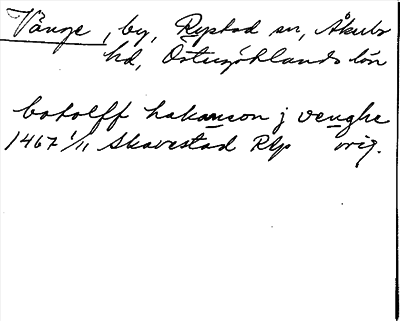 Vånge, by, Rystad sn, Åkerbo
hd, Östergötlands län
botolff hakanson j venghe
1467 1/11 Skavestad Rep orig.